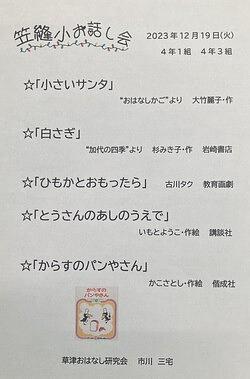 笠縫小お話し会
2023年12月19日(火)
4年1組 4年3組
☆「小さいサンタ」
“おはなしかご”より 大竹麗子・作
☆「白さぎ」
“加代の四季”より 杉みき子・作 岩崎書店
☆「ひもかとおもったら」 古川タク 教育画劇
☆「とうさんのあしのうえで」
いもとようこ・作絵 講談社
☆「からすのパンやさん」
かこさとし・作絵 偕成社
からすの
パンやさん
草津おはなし研究会 市川 三宅